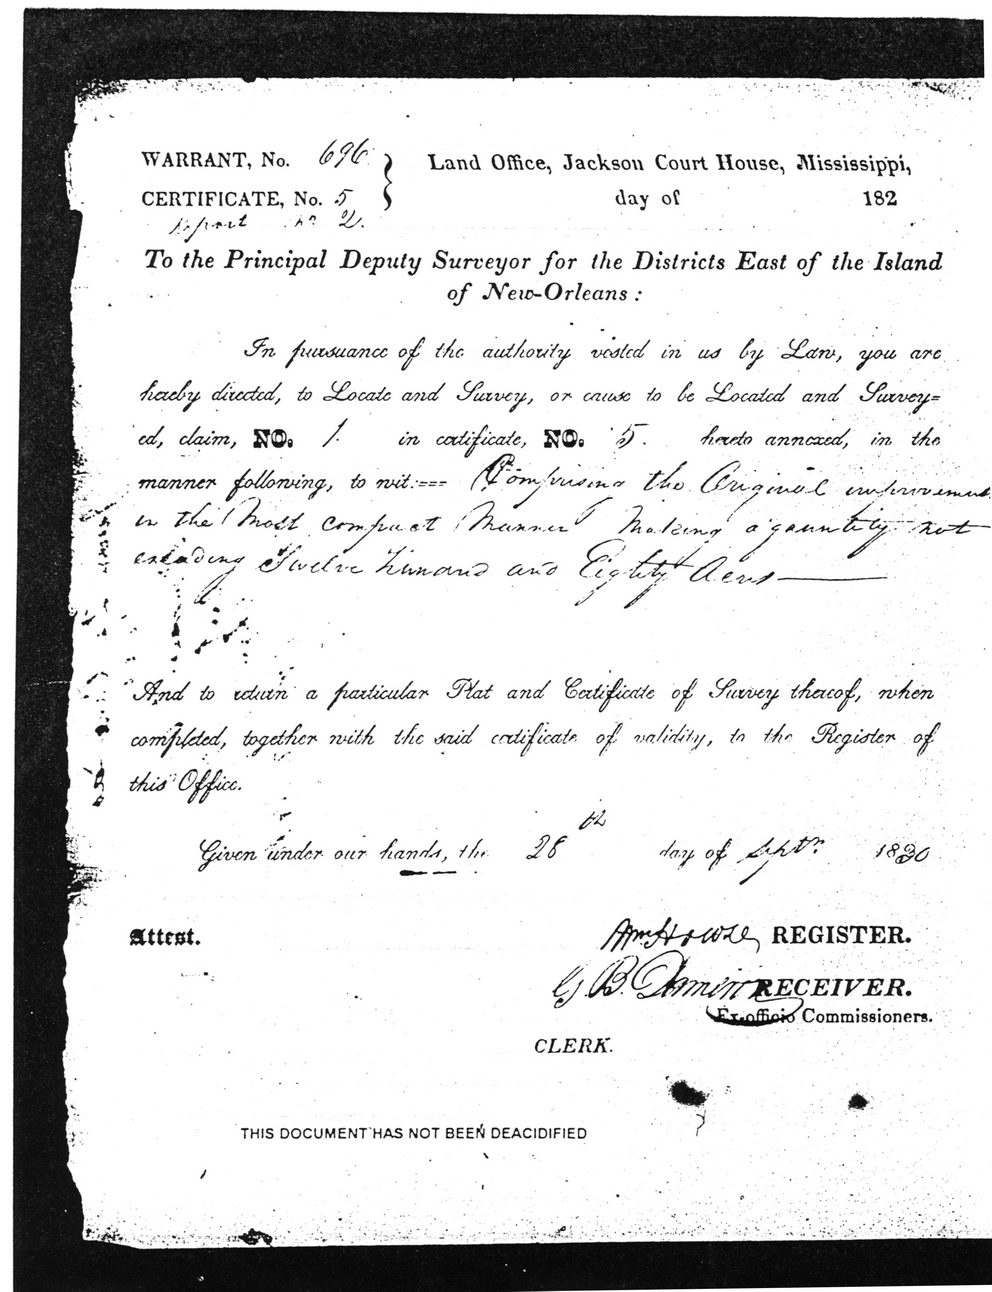 WARRANT, No. 696 } Land Office, Jackson Court House, Mississippi,
CERTIFICATE, No. 5 day of 182
report No 2.
To the Principal Deputy Surveyor for the Districts East of the Island
of New-Orleans:
In pursuance of the authority vested in us by Law, you are
hereby directed, to Locate and Survey, or cause to be Located and Survey=
ed, claim, NO. 1. in certificate, NO. 5. hereto annexed, in the
manner following, to wit:=== Comprising the Original improvement
in the Most compact Manner Making a quantity not
exceeding Twelve hundred and Eighty Acres
And to return a particular Plat and Certificate of Survey thereof, when
completed, together with the said certificate of validity, to the Register of
this Office.
Given under our hands, the 28th day of Septr 1830
Attest. Wm Howze, REGISTER.
G B. RECEIVER.
Ex-officio Commissioners.
CLERK.
THIS DOCUMENT HAS NOT BEEN DEACIDIFIED